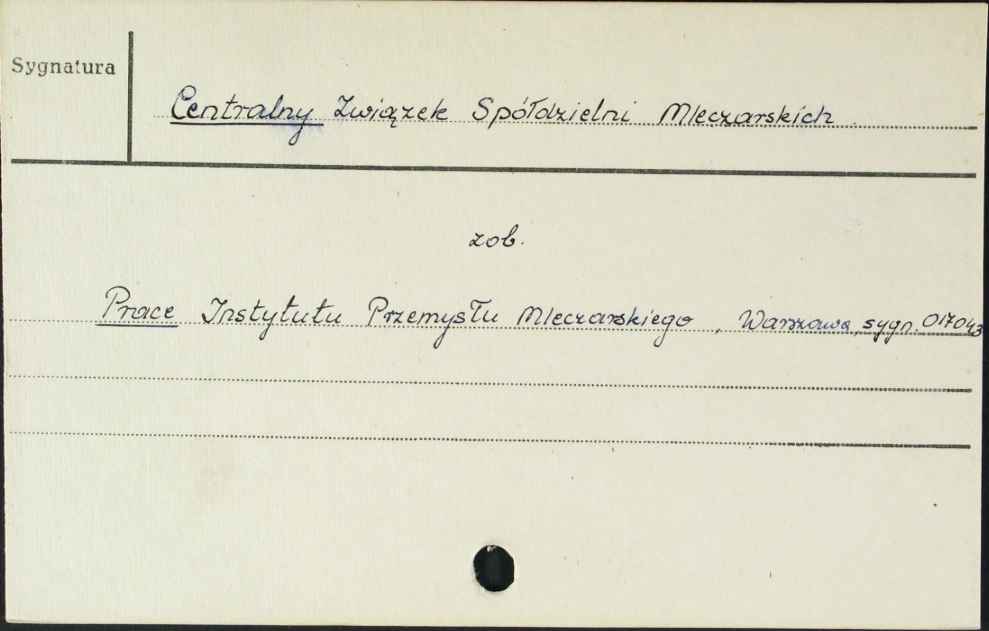 Sygnatura
Centralny Związek Spółdzielni Mleczarskich
zob.
Prace Instytutu Przemysłu Mleczarskiego, Warszawa, sygn. 017043